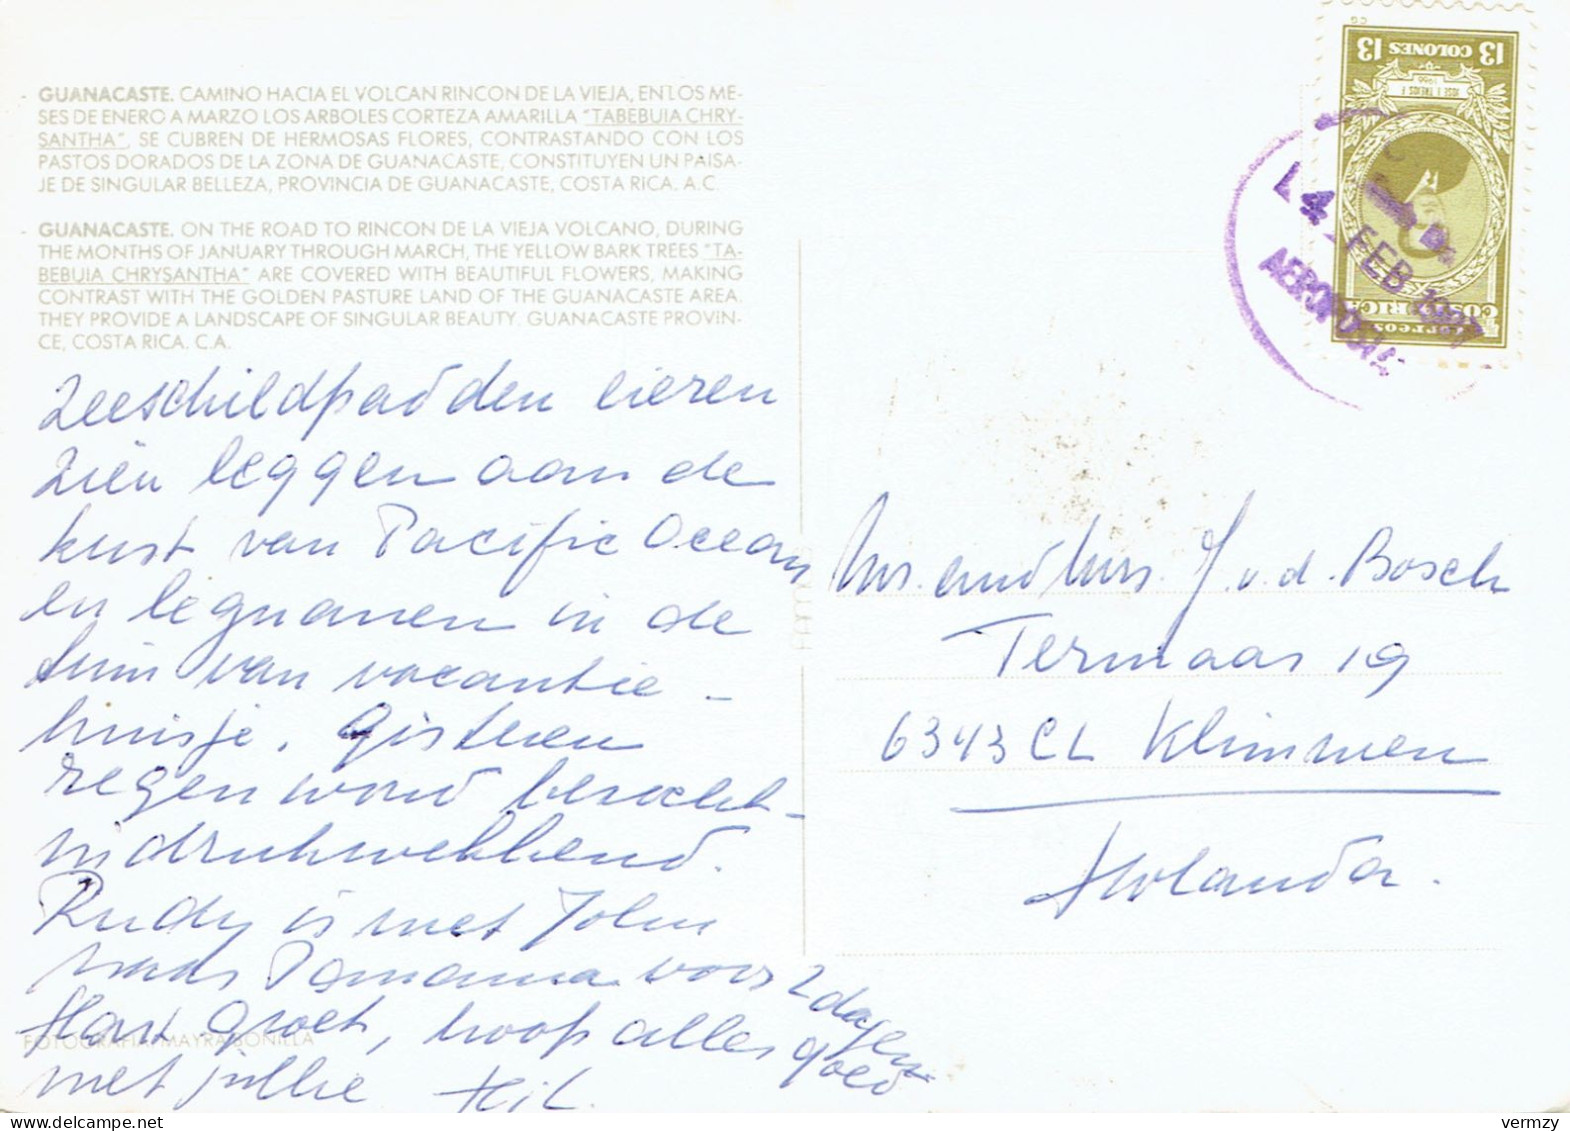 GUANACASTE. CAMINO HACIA EL VOLCAN RINCON DE LA VIEJA, EN LOS ME-
SES DE ENERO A MARZO LOS ARBOLES CORTEZA AMARILLA "TABEBUIA CHRY-
SANTHA", SE CUBREN DE HERMOSAS FLORES, CONTRASTANDO CON LOS
PASTOS DORADOS DE LA ZONA DE GUANACASTE, CONSTITUYEN UN PAISA-
JE DE SINGULAR BELLEZA, PROVINCIA DE GUANACASTE, COSTA RICA. A.C.
GUANACASTE. ON THE ROAD TO RINCON DE LA VIEJA VOLCANO, DURING
THE MONTHS OF JANUARY THROUGH MARCH, THE YELLOW BARK TREES "TA-
BEBUIA CHRYSANTHA" ARE COVERED WITH BEAUTIFUL FLOWERS, MAKING
CONTRAST WITH THE GOLDEN PASTURE LAND OF THE GUANACASTE AREA.
THEY PROVIDE A LANDSCAPE OF SINGULAR BEAUTY. GUANACASTE PROVIN-
CE, COSTA RICA. C.A.
Zeeschildpadden eieren
zien leggen aan de
kust van Pacific Ocean
en leguanen in de
tuin van vacantie-
huisje. Gisteren
regenwoud bezocht-
indrukwekkend.
Rudy is met John
naar Panama voor 2 dagen
Hart. groet, hoop alles goed
met jullie Hil.
FOTOGRAFIA: MAYRA BONILLA
13 COLONES 13
JOSE J. TREJOS F.
1966
CORREOS
COSTA RICA
CG
24 FEB
AEROPO
Mr. and Mrs. J. v. d. Bosch
Termaar 19
6343 CL Klimmen
Holanda.
vermzy